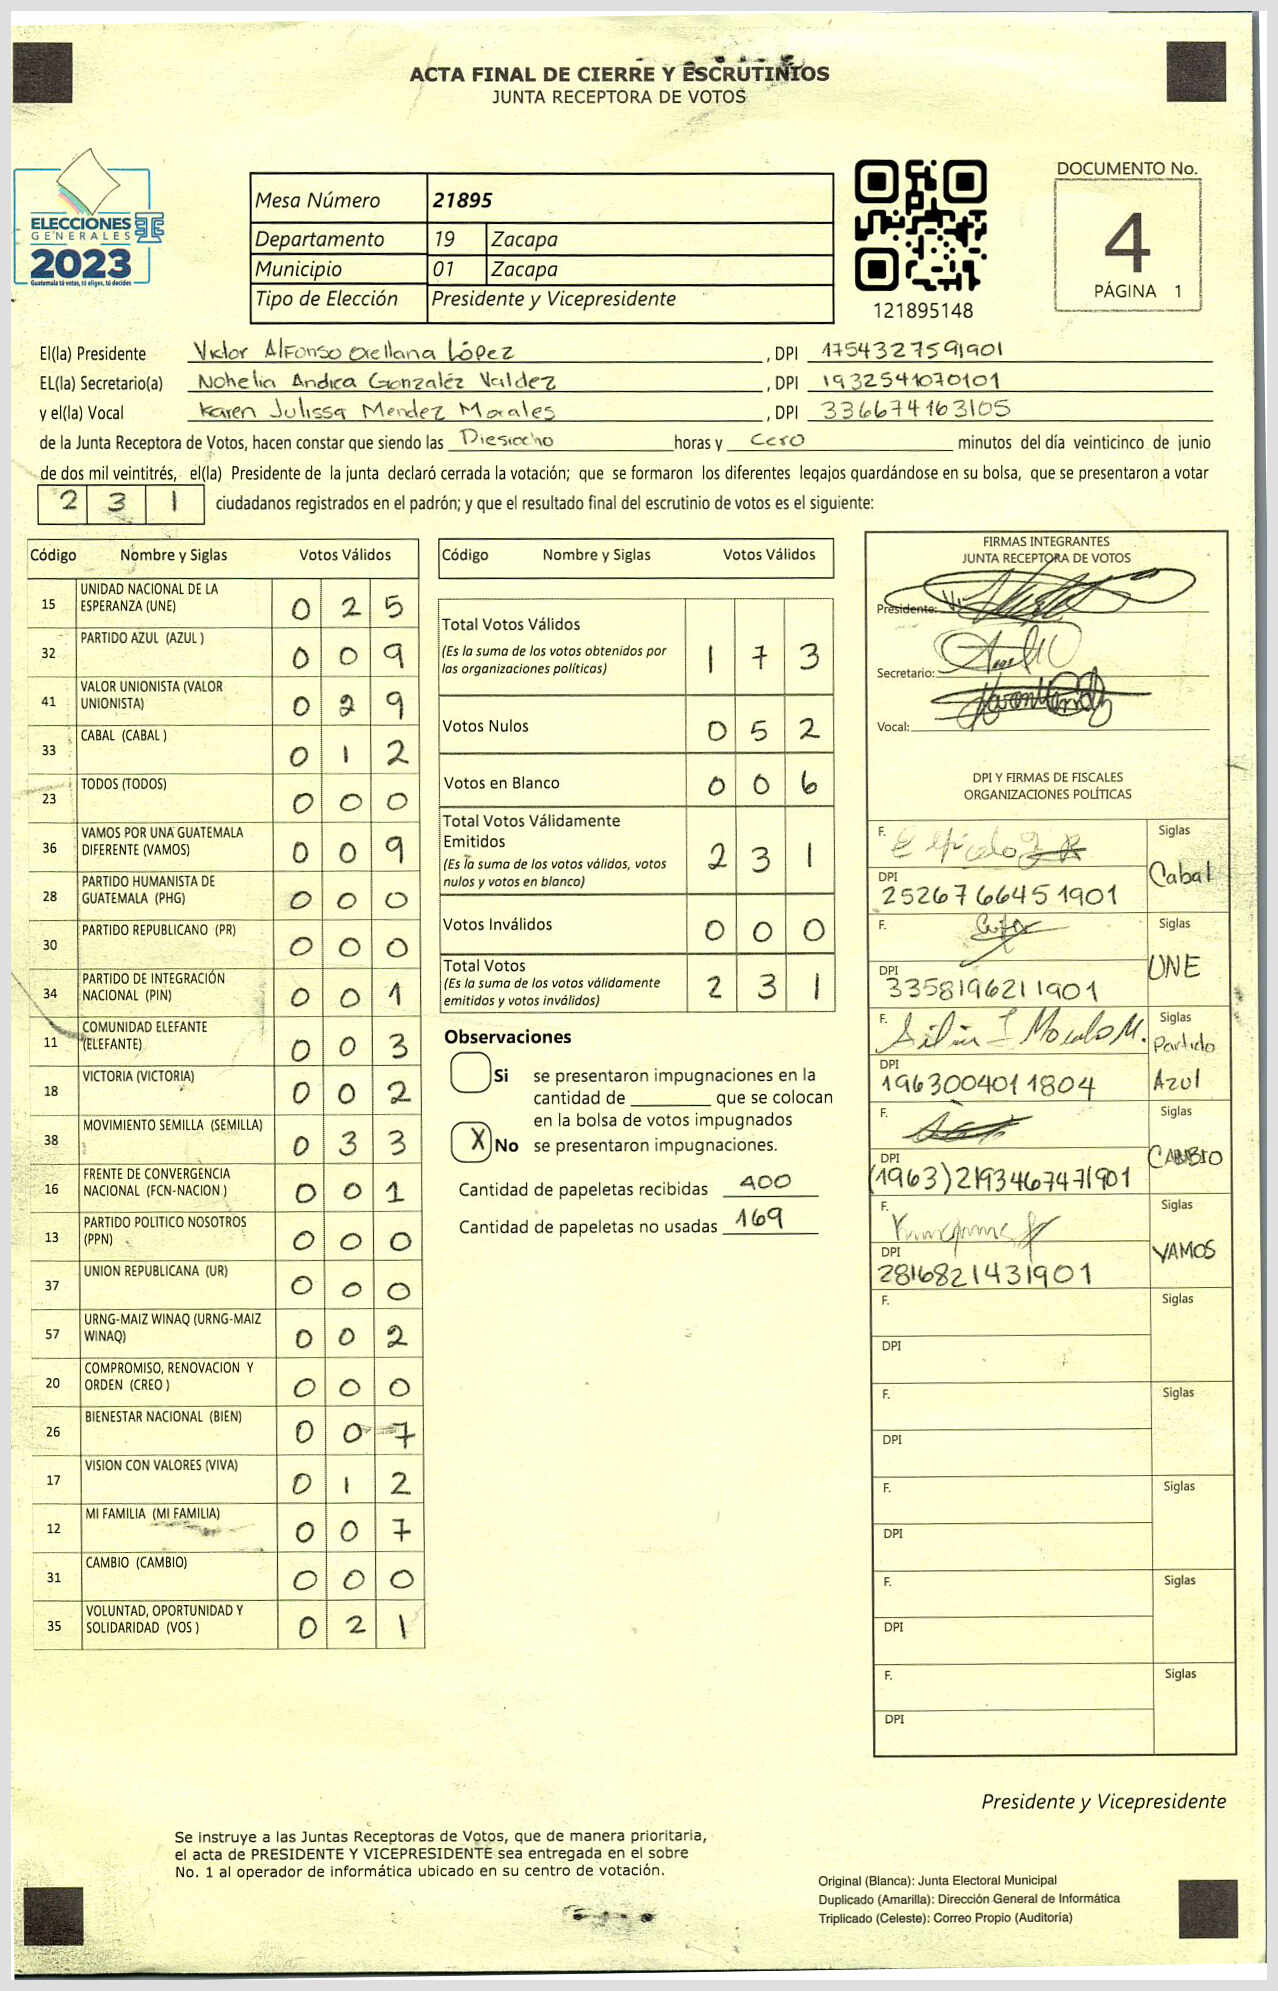 ACTA FINAL DE CIERRE Y ESCRUTINIOS
JUNTA RECEPTORA DE VOTOS
ELECCIONES
GENERALES
2023
Guatemala tú votas, tú eliges, tú decides
Mesa Número 21895
Departamento 19 Zacapa
Municipio 01 Zacapa
Tipo de Elección Presidente y Vicepresidente
121895148
DOCUMENTO No.
4
PÁGINA 1
El(la) Presidente Victor Alfonso Orellana López, DPI 1754327591901
EL(la) Secretario(a) Nohelia Andrea Gonzaléz Valdez, DPI 1932541070101
y el(la) Vocal Karen Julissa Mendez Morales, DPI 336674163105
de la Junta Receptora de Votos, hacen constar que siendo las Diesiocho horas y Cero minutos del día veinticinco de junio
de dos mil veintitrés, el(la) Presidente de la junta declaró cerrada la votación; que se formaron los diferentes legajos quardándose en su bolsa, que se presentaron a votar
2 3 1 ciudadanos registrados en el padrón; y que el resultado final del escrutinio de votos es el siguiente:
Código Nombre y Siglas Votos Válidos
15 UNIDAD NACIONAL DE LA
ESPERANZA (UNE) 0 2 5
32 PARTIDO AZUL (AZUL ) 0 0 9
41 VALOR UNIONISTA (VALOR
UNIONISTA) 0 2 9
33 CABAL (CABAL ) 0 1 2
23 TODOS (TODOS) 0 0 0
36 VAMOS POR UNA GUATEMALA
DIFERENTE (VAMOS) 0 0 9
28 PARTIDO HUMANISTA DE
GUATEMALA (PHG) 0 0 0
30 PARTIDO REPUBLICANO (PR) 0 0 0
34 PARTIDO DE INTEGRACIÓN
NACIONAL (PIN) 0 0 1
11 COMUNIDAD ELEFANTE
(ELEFANTE) 0 0 3
18 VICTORIA (VICTORIA) 0 0 2
38 MOVIMIENTO SEMILLA (SEMILLA) 0 3 3
16 FRENTE DE CONVERGENCIA
NACIONAL (FCN-NACION ) 0 0 1
13 PARTIDO POLITICO NOSOTROS
(PPN) 0 0 0
37 UNION REPUBLICANA (UR) 0 0 0
57 URNG-MAIZ WINAQ (URNG-MAIZ
WINAQ) 0 0 2
20 COMPROMISO, RENOVACION Y
ORDEN (CREO ) 0 0 0
26 BIENESTAR NACIONAL (BIEN) 0 0 7
17 VISION CON VALORES (VIVA) 0 1 2
12 MI FAMILIA (MI FAMILIA) 0 0 7
31 CAMBIO (CAMBIO) 0 0 0
35 VOLUNTAD, OPORTUNIDAD Y
SOLIDARIDAD (VOS ) 0 2 1
Código Nombre y Siglas Votos Válidos
Total Votos Válidos
(Es la suma de los votos obtenidos por
las organizaciones políticas) 1 7 3
Votos Nulos 0 5 2
Votos en Blanco 0 0 6
Total Votos Válidamente
Emitidos
(Es la suma de los votos válidos, votos
nulos y votos en blanco) 2 3 1
Votos Inválidos 0 0 0
Total Votos
(Es la suma de los votos válidamente
emitidos y votos inválidos) 2 3 1
Observaciones
Si se presentaron impugnaciones en la
cantidad de ________ que se colocan
en la bolsa de votos impugnados
X No se presentaron impugnaciones.
Cantidad de papeletas recibidas 400
Cantidad de papeletas no usadas 169
FIRMAS INTEGRANTES
JUNTA RECEPTORA DE VOTOS
Presidente:
Secretario:
Vocal:
DPI Y FIRMAS DE FISCALES
ORGANIZACIONES POLÍTICAS
F. Siglas
Cabal
DPI
2526766451901
F. Siglas
UNE
DPI
3358196211901
F. Siglas
Partido
Azul
DPI
1963004011804
F. Siglas
CAMBIO
DPI
(1963)2193467471901
F. Siglas
VAMOS
DPI
2816821431901
F. Siglas
DPI
F. Siglas
DPI
F. Siglas
DPI
F. Siglas
DPI
F. Siglas
DPI
Presidente y Vicepresidente
Se instruye a las Juntas Receptoras de Votos, que de manera prioritaria,
el acta de PRESIDENTE Y VICEPRESIDENTE sea entregada en el sobre
No. 1 al operador de informática ubicado en su centro de votación.
Original (Blanca): Junta Electoral Municipal
Duplicado (Amarilla): Dirección General de Informática
Triplicado (Celeste): Correo Propio (Auditoría)